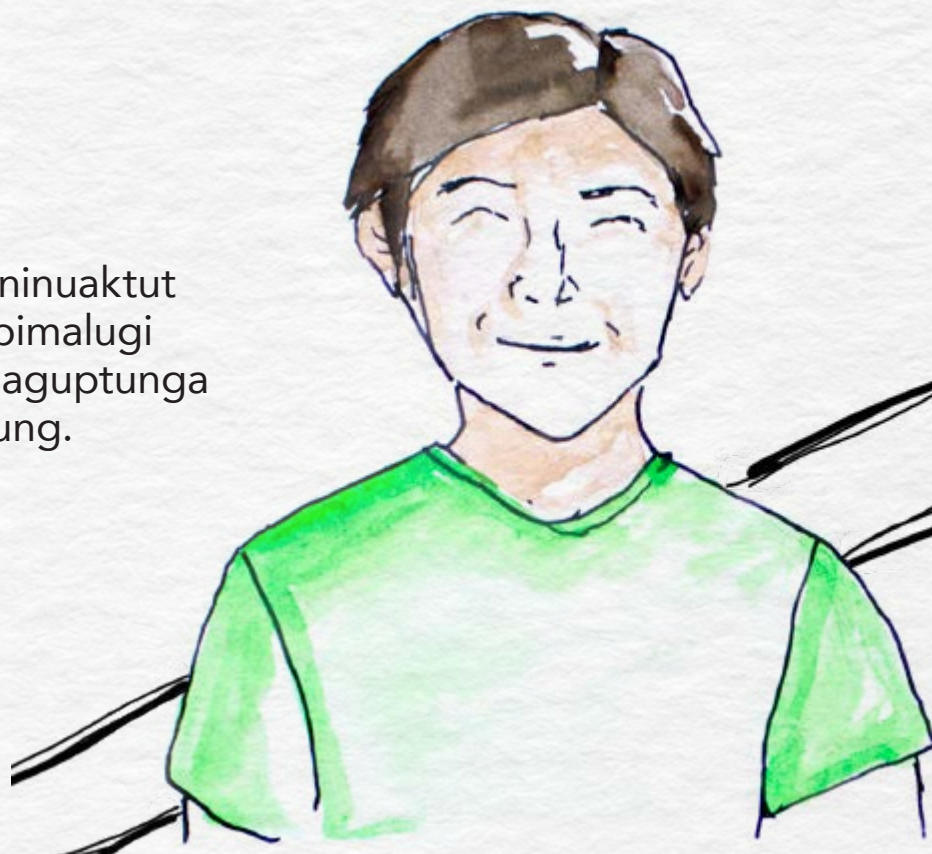 ninuaktut
pimalugi
aguptunga
ung.